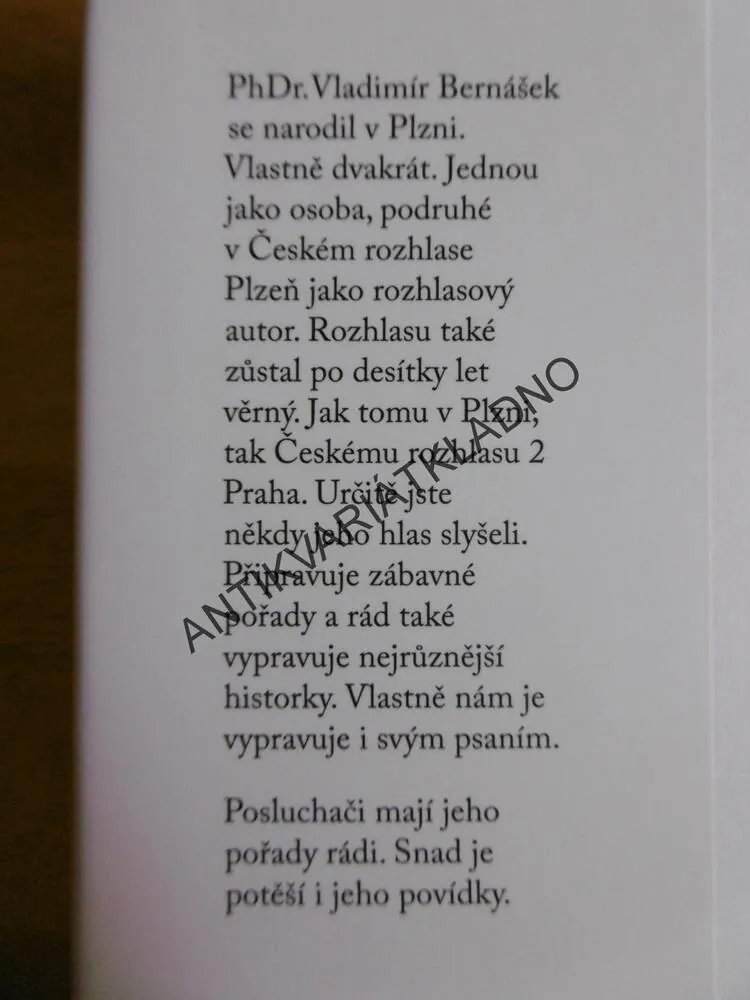 PhDr. Vladimír Bernášek
se narodil v Plzni.
Vlastně dvakrát. Jednou
jako osoba, podruhé
v Českém rozhlase
Plzeň jako rozhlasový
autor. Rozhlasu také
zůstal po desítky let
věrný. Jak tomu v Plzni,
tak Českému rozhlasu 2
Praha. Určitě jste
někdy jeho hlas slyšeli.
Připravuje zábavné
pořady a rád také
vypravuje nejrůznější
historky. Vlastně nám je
vypravuje i svým psaním.
Posluchači mají jeho
pořady rádi. Snad je
potěší i jeho povídky.
ANTIKVARIÁTKLADNO